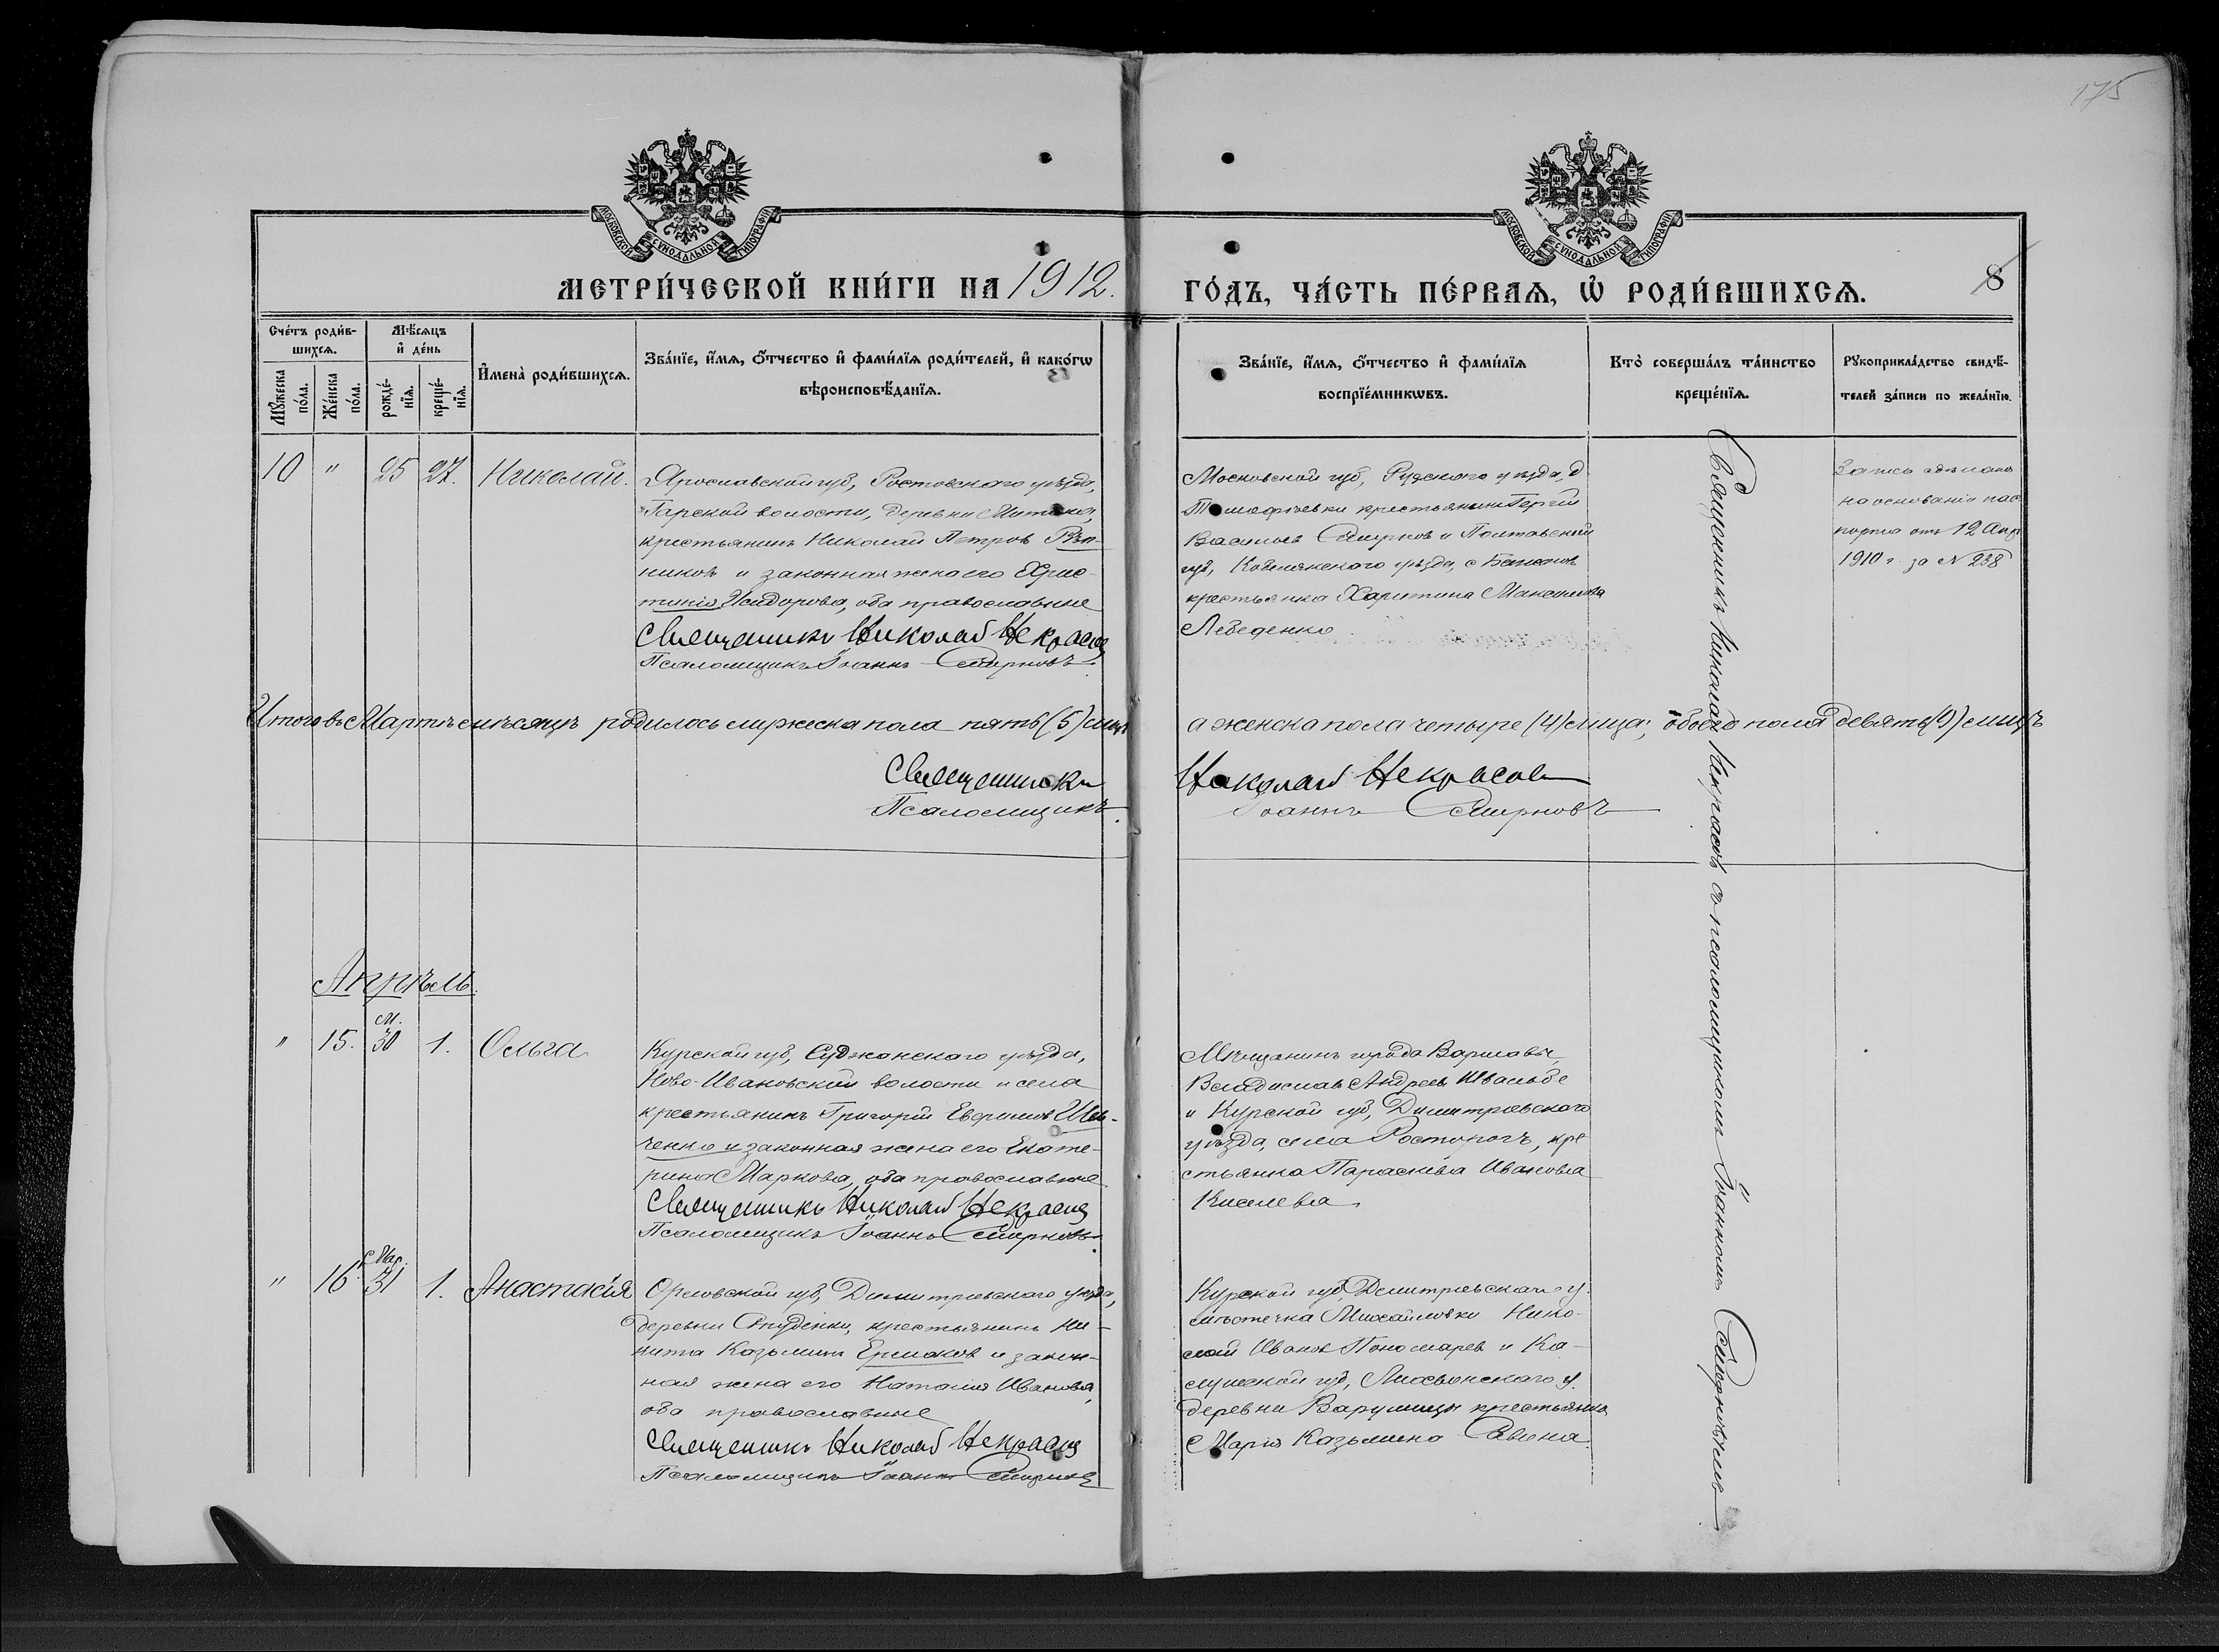 175
МОСКОВСКОЙ СУНОДАЛЬНОЙ ТИПОГРАФІИ
МОСКОВСКОЙ СУНОДАЛЬНОЙ ТИПОГРАФІИ
МЕТРИ́ЧЕСКОЙ КНИ́ГИ НА 1912.
ГО́ДЪ, ЧА́СТЬ ПЕ́РВАЯ, Ѡ҆ РОДИ́ВШИХСЯ.
8
Сче́тъ роди́в-
шихся.
Мꙋ́жеска по́ла.
Же́нска по́ла.
Мѣ́сяцъ
и҆ де́нь
рожде́-
нїя.
креще́-
нїя.
И҆мена̀ роди́вшихся.
Зва́нїе, и҆́мя, ѻ҆́тчество и҆ фами́лїя роди́телей, и҆ како́гѡ
вѣроисповѣ́данїя.
Зва́нїе, и҆́мя, ѻ҆́тчество и҆ фами́лїя
воспрїе́мникѡвъ.
Кто̀ соверша́лъ та́инство
креще́нїя.
Рꙋкоприкла́дство свидѣ́-
телей за́писи по жела́нїю.
10 " 25 27. Николай.
Ярославской губ, Ростовскаго уѣзда,
Гарской волости, деревни
крестьянинъ Николай Петров Рѣп-
никовъ и законная жена его Хрис-
тинія Исидорова, оба православные
Священникъ Николай Некрасов
Псаломщикъ Іоаннъ Смирновъ.
Московской губ, Рузскаго уѣзда, д
крестьянинъ Сергѣй
Васильевъ Смирнов и Полтавской
губ, Кобелякскаго уѣзда, с
крестьянка Харитина Максимова
Лебеденко.
Запись сдѣлана
на основаніи пас
порта отъ 12 Апр
1910 г за № 238
Итого въ Мартѣ мѣсяцѣ родилось мужеска пола пять (5) лицъ
а женска пола четыре (4) лица; обоего пола девять (9) лицъ
Священникъ Николай Некрасовъ
Псаломщикъ Іоаннъ Смирновъ
Апрѣль.
" 15. М. 30 1. Ольга
Курской губ, Суджанскаго уѣзда,
Ново-Ивановской волости и села
крестьянинъ Григорій Евфимов Шев-
ченко и законная жена его Екате-
рина Маркова, оба православные
Священникъ Николай Некрасов
Псаломщикъ Іоаннъ Смирновъ.
Мѣщанинъ города Варшавы
Владиславъ Андреевъ Швальбе
и Курской губ, Димитровскаго
уѣзда, села Расторогъ, кре
стьянка Параскева Иванова
Киселева
" 16. Мар. 31 1. Анастасія
Орловской губ, Димитровскаго уѣзда,
деревни Студенки, крестьянинъ Ни-
кита Казьминъ Ермаков и закон-
ная жена его Наталия Иванова,
оба православные
Священникъ Николай Некрасов
Псаломщикъ Іоаннъ Смирнов
Курской губ, Димитровскаго у.
мѣстечка Михайловки Нико-
лай Иванов Пономарев и Ка-
лужской губ, Лихвинскаго у.
деревни крестьянка
Марія Казьмина Савина.
Священникъ Николай Некрасовъ съ псаломщикомъ Іоанномъ Смирновымъ